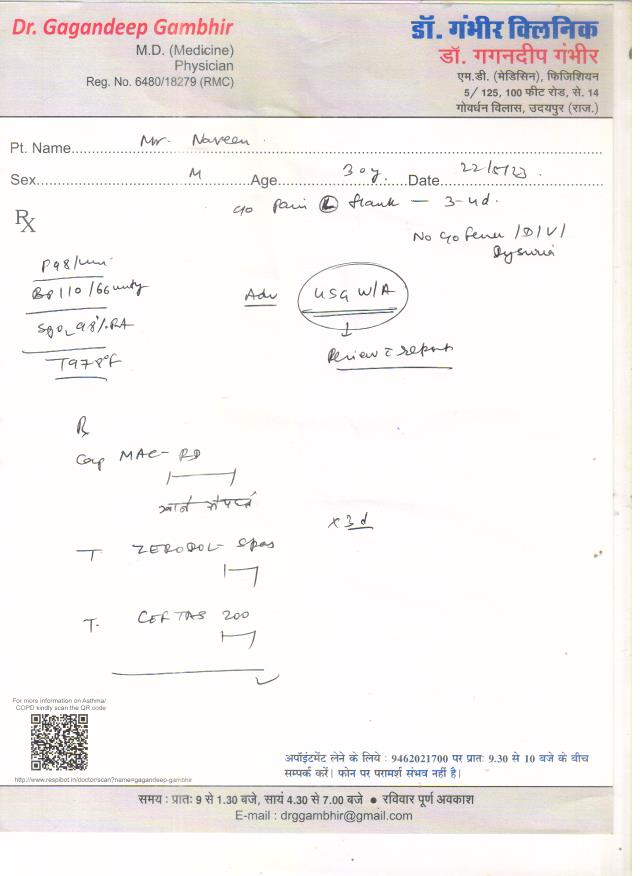 Dr. Gagandeep Gambhir
M.D. (Medicine)
Physician
Reg. No. 6480/18279 (RMC)
डॉ. गंभीर क्लिनिक
डॉ. गगनदीप गंभीर
एम.डी. (मेडिसिन), फिजिशियन
5/ 125, 100 फीट रोड, से. 14
गोवर्धन विलास, उदयपुर (राज.)
Pt. Name Mr. Naveen
Sex M Age 30y. Date 22/5/23
Rx
c/o Pain (L) flank — 3-4d.
No c/o fever /D/V/
Dysuria
P 98/min
BP 110/66 mmHg
SpO2 98%. RA
T 97.8°F
Adv USG W/A
Review c report
Rx
Cap MAC-RD
खाने से पहले
x 3d
T. ZERODOL-Spas
T. CEFTAS 200
For more information on Asthma/
COPD kindly scan the QR code
http://www.respibot.in/doctor/scan?name=gagandeep-gambhir
अपॉइंटमेंट लेने के लिये : 9462021700 पर प्रातः 9.30 से 10 बजे के बीच
सम्पर्क करें। फोन पर परामर्श संभव नहीं है।
समय : प्रातः 9 से 1.30 बजे, सायं 4.30 से 7.00 बजे ● रविवार पूर्ण अवकाश
E-mail : drggambhir@gmail.com